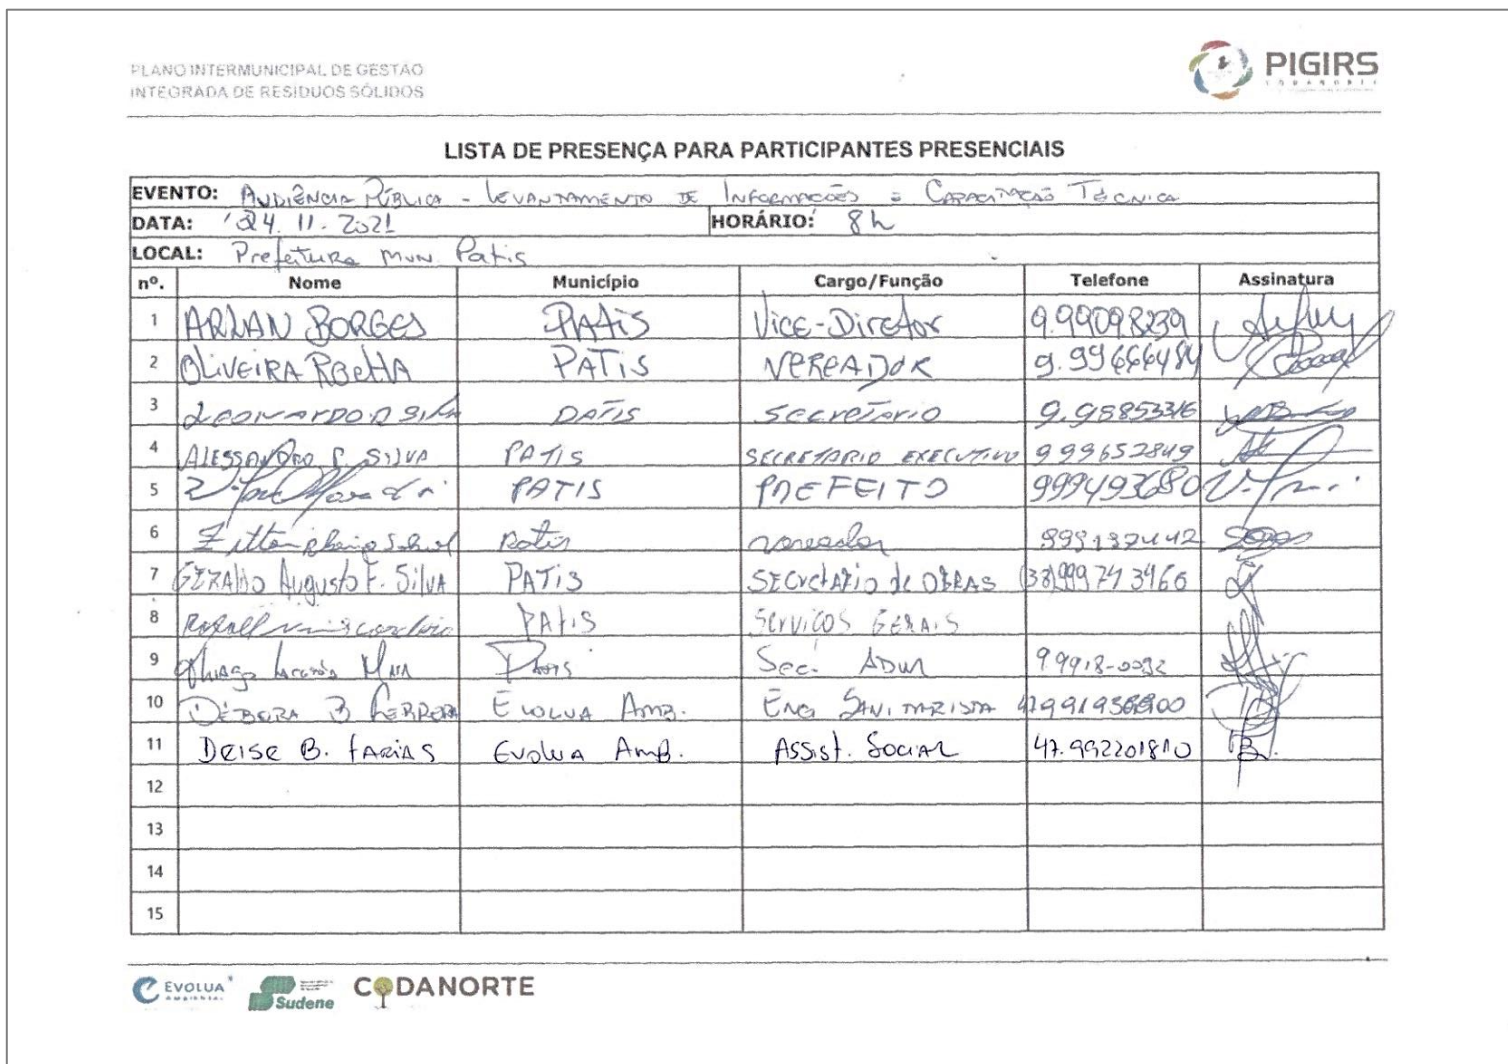 PLANO INTERMUNICIPAL DE GESTÃO
INTEGRADA DE RESÍDUOS SÓLIDOS
PIGIRS
CODANORTE
LISTA DE PRESENÇA PARA PARTICIPANTES PRESENCIAIS
EVENTO: AUDIÊNCIA PÚBLICA - LEVANTAMENTO DE INFORMAÇÕES E CAPACITAÇÃO TÉCNICA
DATA: 24.11.2021 HORÁRIO: 8h
LOCAL: Prefeitura Mun. Patis
nº. Nome Município Cargo/Função Telefone Assinatura
1 ARLAN BORGES PATIS Vice-Diretor 9.99098239
2 OLIVEIRA ROCHA PATIS VEREADOR 9.99666484
3 LEONARDO D SILVA PATIS secretário 9.98853316
4 ALESSANDRO P. SILVA PATIS SECRETARIO EXECUTIVO 999652849
5 PATIS PREFEITO 999493680
6 Patis vereador
7 GERALDO Augusto F. SilVA PATIS SECretARIO de OBRAS (38)99974 3966
8 PAtis SERVIÇOS GERAIS
9 Thiago MAIA Patis Sec. ADM 9.9918-0032
10 DÉBORA B FERREIRA EVOLUA AMB. ENG SANITARISTA
11 DEISE B. FARIAS EVOLUA AMB. ASSIST. SOCIAL 47.992201810
12
13
14
15
EVOLUA AMBIENTAL Sudene CODANORTE